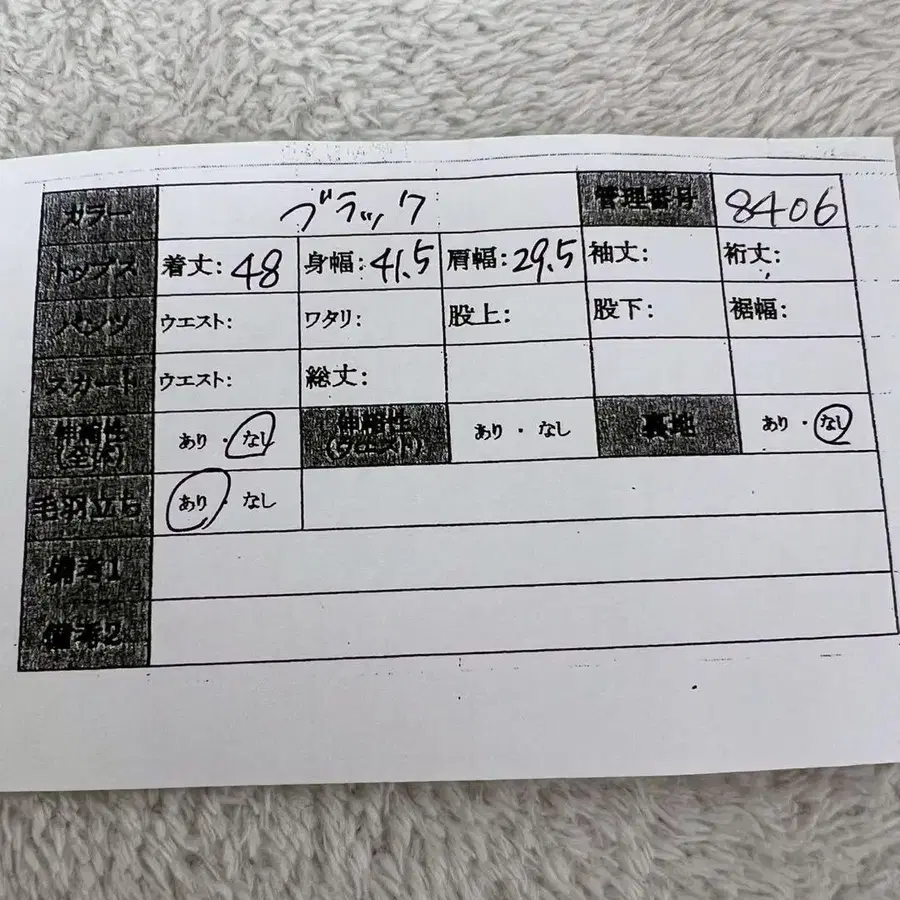 カラー ブラック 管理番号 8406
トップス 着丈:48 身幅:41.5 肩幅:29.5 袖丈: 裄丈:
パンツ ウエスト: ワタリ: 股上: 股下: 裾幅:
スカート ウエスト: 総丈:
伸縮性(全体) あり・なし 伸縮性(ウエスト) あり・なし 裏地 あり・なし
毛羽立ち あり・なし
備考1
備考2